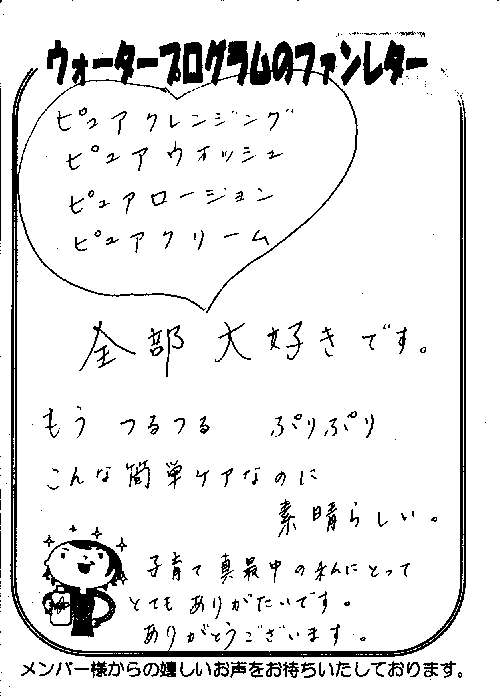 ウォータープログラムのファンレター
ピュアクレンジング
ピュアウォッシュ
ピュアローション
ピュアクリーム
全部大好きです。
もう つるつる ぷりぷり
こんな簡単ケアなのに
素晴らしい。
子育て真最中の私にとって
とてもありがたいです。
ありがとうございます。
メンバー様からの嬉しいお声をお待ちいたしております。